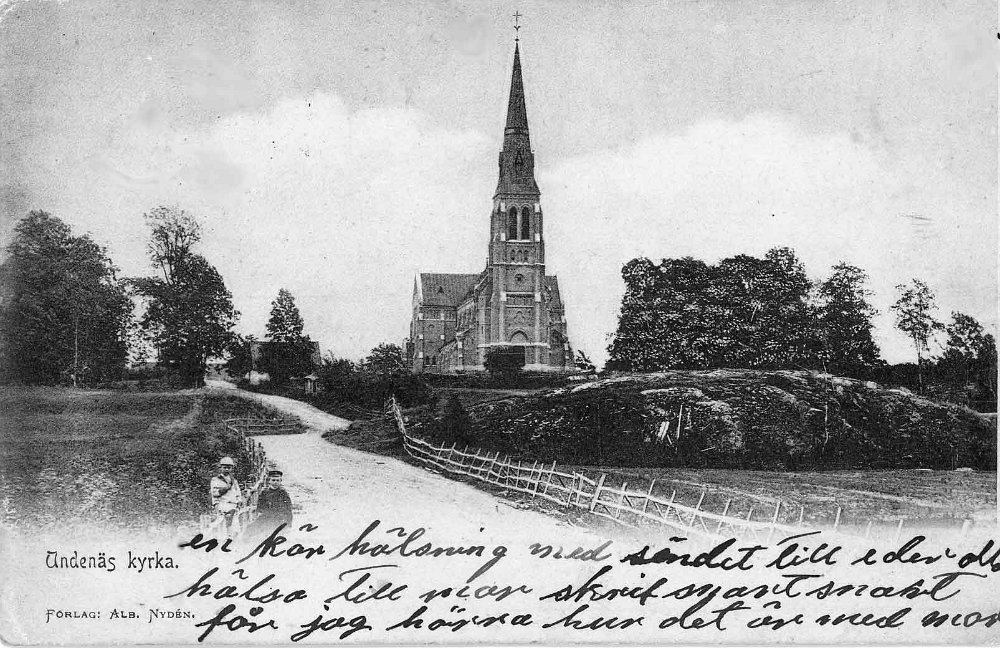 en kär hälsning med sändet till eder alla
Undenäs kyrka.
hälsa till mor skrif snart snart
FÖRLAG: ALB. NYDÉN.
får jag hörra hur det är med mor